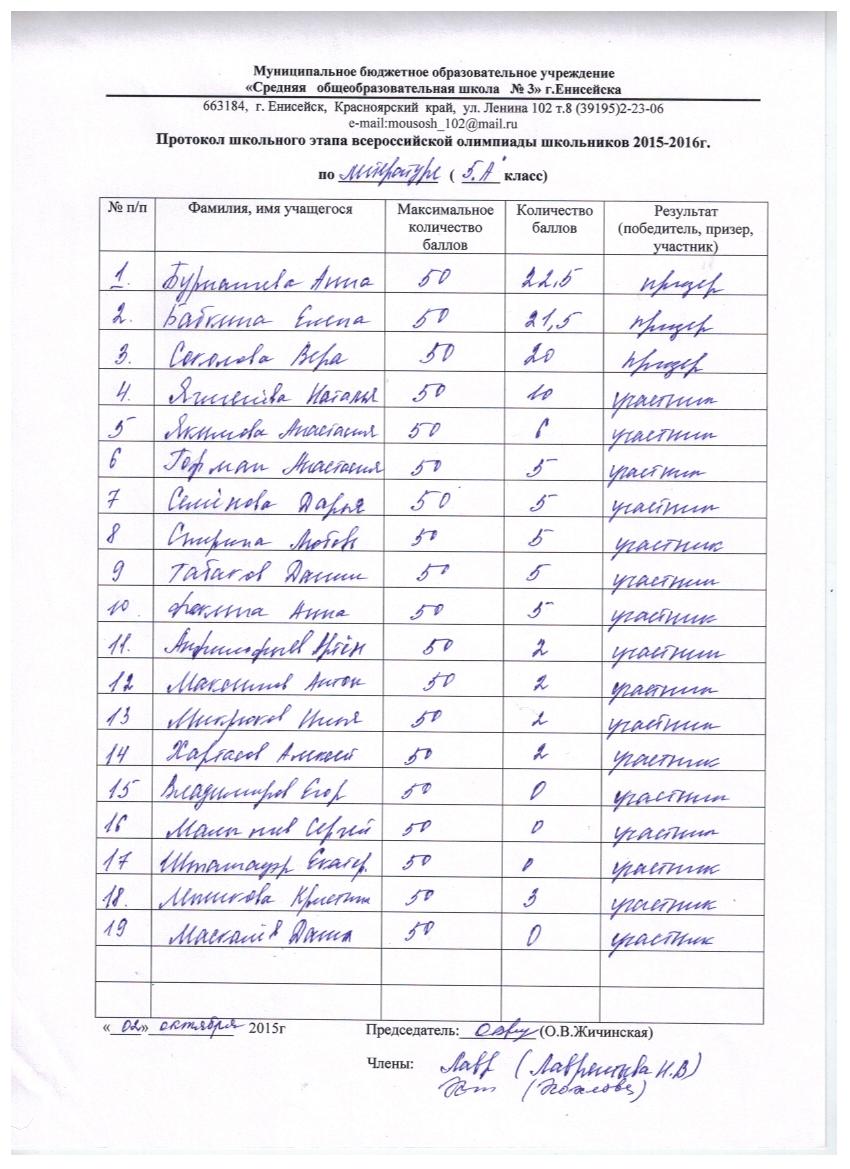 Муниципальное бюджетное образовательное учреждение
«Средняя общеобразовательная школа № 3» г.Енисейска
663184, г. Енисейск, Красноярский край, ул. Ленина 102 т.8 (39195)2-23-06
e-mail:mousosh_102@mail.ru
Протокол школьного этапа всероссийской олимпиады школьников 2015-2016г.
по литературе ( 5.А класс)
№ п/п Фамилия, имя учащегося Максимальное количество баллов Количество баллов Результат (победитель, призер, участник)
1. Анна 50 22,5 призер
2. Бабкина Елена 50 21,5 призер
3. Соколова Вера 50 20 призер
4. Наталья 50 10 участник
5 Якимова Анастасия 50 6 участник
6 Горман Анастасия 50 5 участник
7 Семёнова Дарья 50 5 участник
8 Спирина Любовь 50 5 участник
9 Табаков Данил 50 5 участник
10. Фокина Анна 50 5 участник
11. Артём 50 2 участник
12 Максимов Антон 50 2 участник
13 Микрюков Илья 50 2 участник
14 Алексей 50 2 участник
15 Владимиров Егор 50 0 участник
16 Сергей 50 0 участник
17 Екатер. 50 0 участник
18. Мышкова Кристина 50 3 участник
19 Даша 50 0 участник
«02» октября 2015г Председатель: (О.В.Жичинская)
Члены: Лавр (Лаврентьева Н.В)